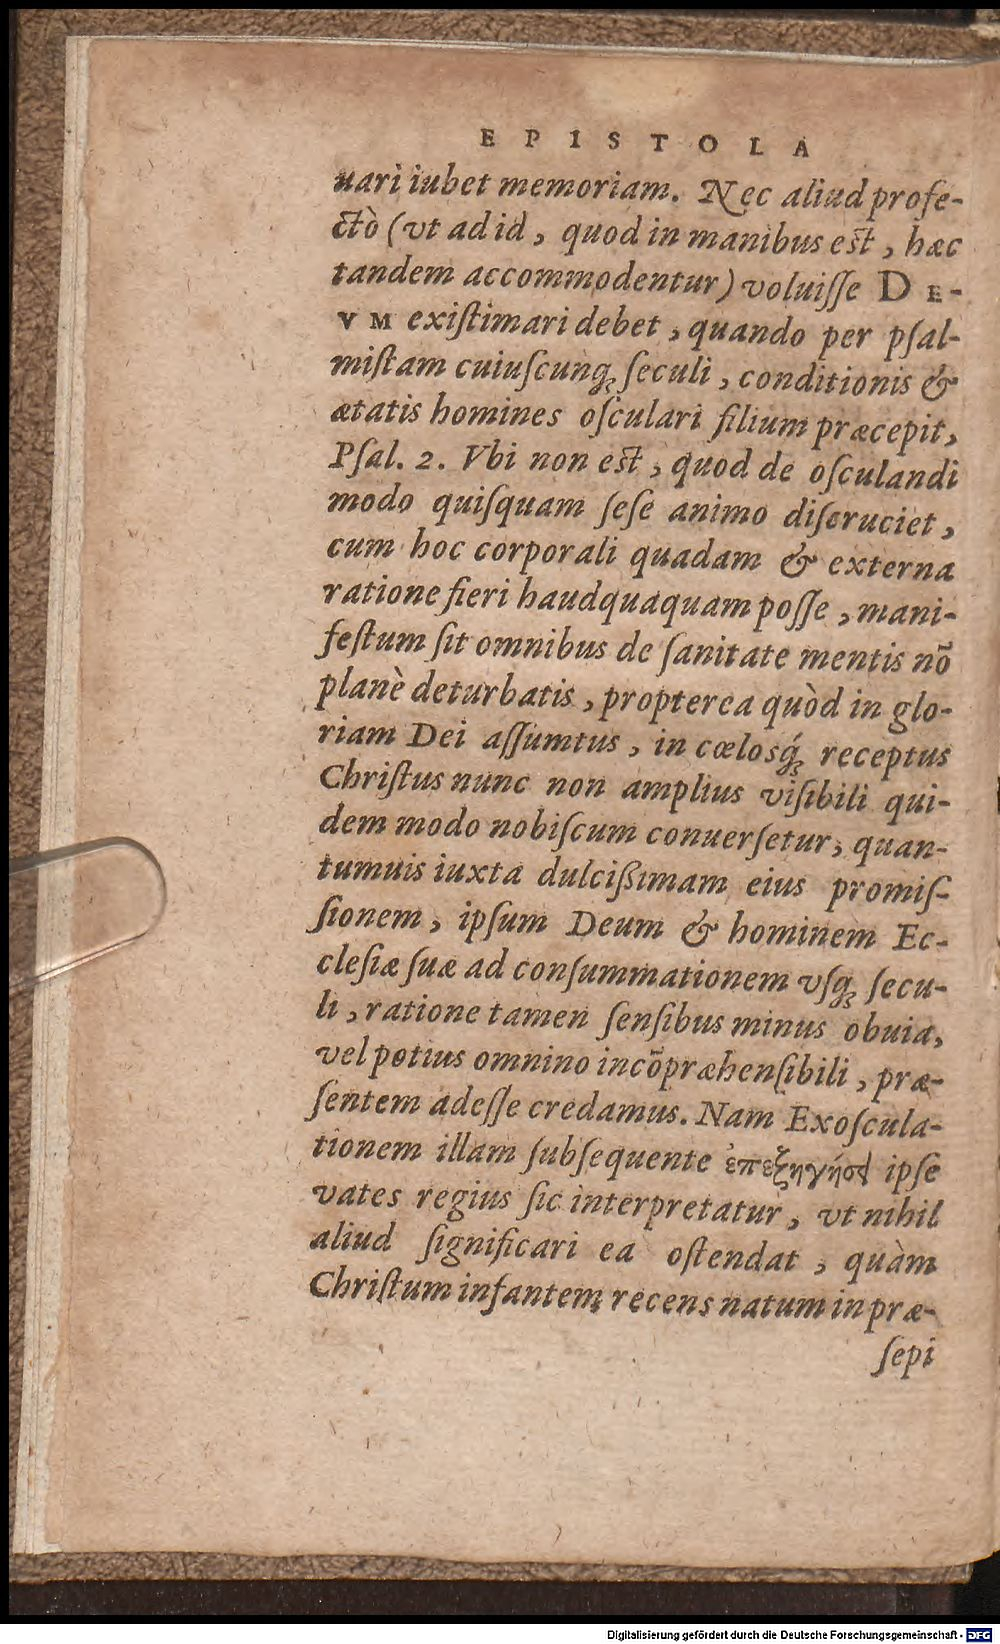 EPISTOLA
uari iubet memoriam. Nec aliud profe-
ctò (vt ad id, quod in manibus est, hæc
tandem accommodentur) voluiſſe DE-
VM exiſtimari debet, quando per pſal-
miſtam cuiuſcunq; ſeculi, conditionis &
ætatis homines oſculari filium præcepit,
Pſal. 2. Vbi non est, quod de oſculandi
modo quiſquam ſeſe animo diſcruciet,
cum hoc corporali quadam & externa
ratione fieri haudquaquam poſſe, mani-
feſtum ſit omnibus de ſanitate mentis nō
planè deturbatis, propterea quòd in glo-
riam Dei aſſumtus, in cœlosq́; receptus
Chriſtus nunc non amplius viſibili qui-
dem modo nobiſcum conuerſetur, quan-
tumuis iuxta dulcißimam eius promiſ-
ſionem, ipſum Deum & hominem Ec-
cleſiæ ſuæ ad conſummationem vſq; ſecu-
li, ratione tamen ſenſibus minus obuia,
vel potius omnino incōpræhenſibili, præ-
ſentem adeſſe credamus. Nam Exoſcula-
tionem illam ſubſequente ἐπεξηγήσει ipſe
vates regius ſic interpretatur, vt nihil
aliud ſignificari ea oſtendat, quàm
Chriſtum infantem recens natum in præ-
ſepi
Digitalisierung gefördert durch die Deutsche Forschungsgemeinschaft - DFG